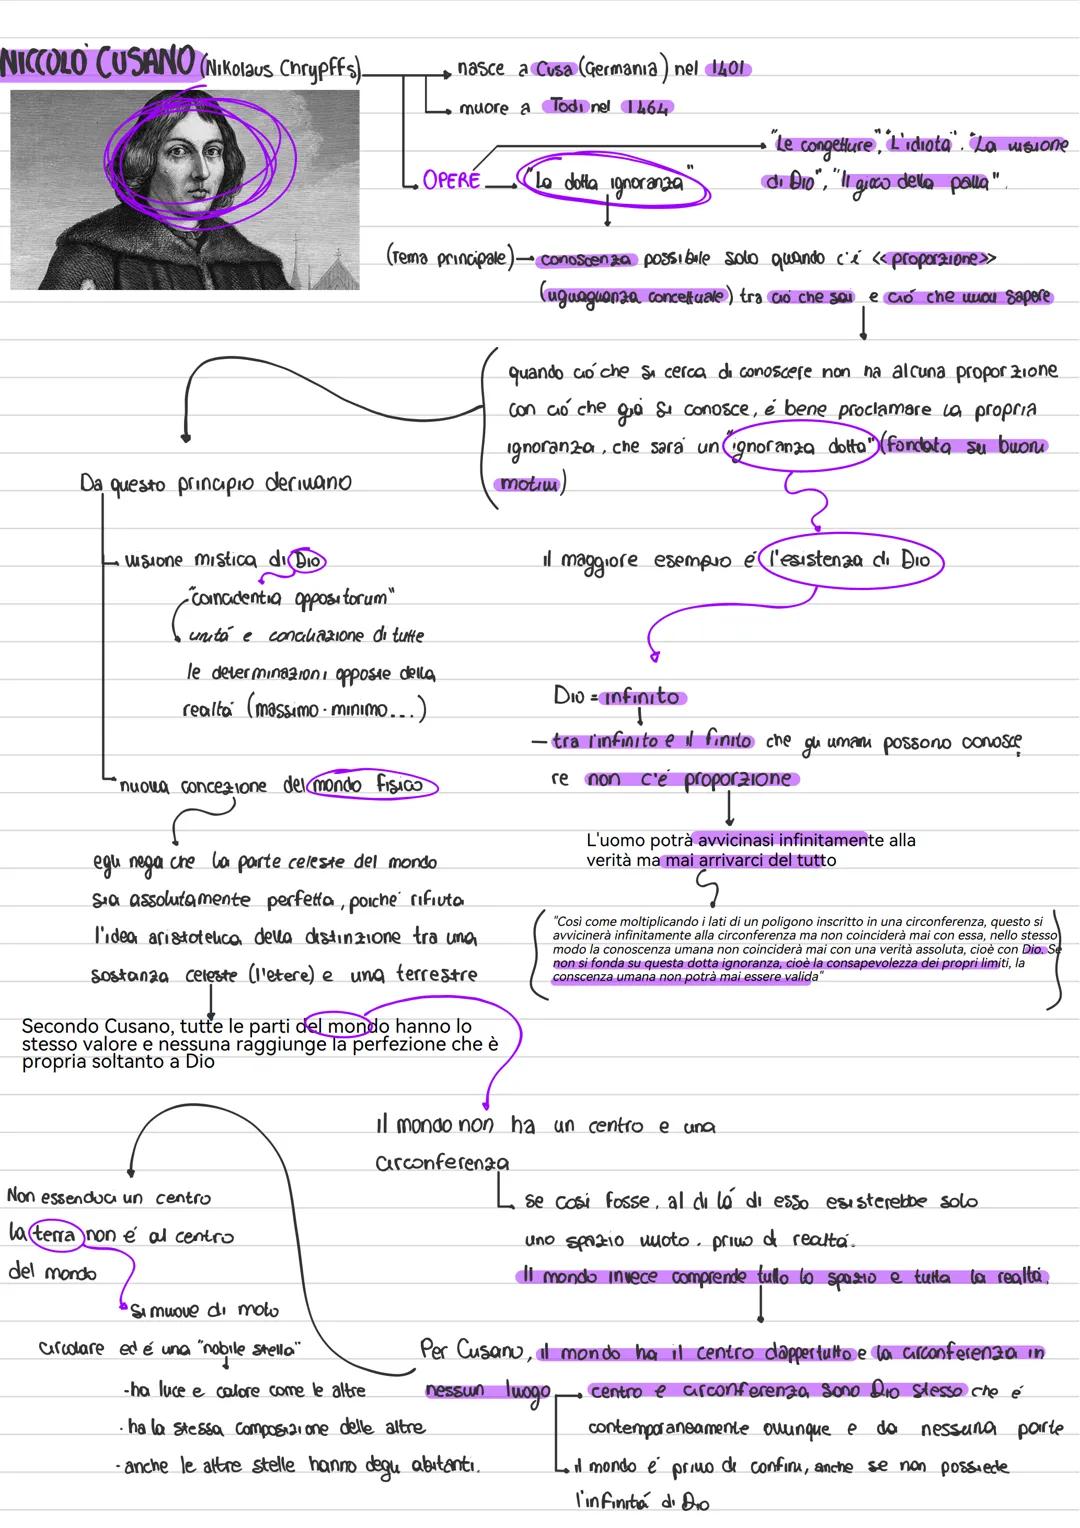 NICCOLÒ CUSANO (Nikolaus Chrypffs)
nasce a Cusa (Germania) nel 1401
muore a Todi nel 1464
OPERE
"La dotta ignoranza"
"Le congetture", "L'idiota". "La visione
di Dio", "Il gioco della palla".
(Tema principale) → conoscenza possibile solo quando c'è <<proporzione>>
(uguaglianza concettuale) tra ciò che sai e ciò che vuoi sapere
quando ciò che si cerca di conoscere non ha alcuna proporzione
con ciò che già si conosce, é bene proclamare la propria
ignoranza, che sarà un "ignoranza dotta" (fondata su buoni
motivi)
il maggiore esempio é l'esistenza di Dio
Dio = infinito
- tra l'infinito e il finito che gli umani possono conosce
re non c'é proporzione
L'uomo potrà avvicinasi infinitamente alla
verità ma mai arrivarci del tutto
"Così come moltiplicando i lati di un poligono inscritto in una circonferenza, questo si
avvicinerà infinitamente alla circonferenza ma non coinciderà mai con essa, nello stesso
modo la conoscenza umana non coinciderà mai con una verità assoluta, cioè con Dio. Se
non si fonda su questa dotta ignoranza, cioè la consapevolezza dei propri limiti, la
conscenza umana non potrà mai essere valida"
Da questo principio derivano
visione mistica di Dio
"coincidentia oppositorum"
unità e conciliazione di tutte
le determinazioni opposte della
realtà (massimo - minimo...)
nuova concezione del mondo fisico
egli nega che la parte celeste del mondo
sia assolutamente perfetta, poiché rifiuta
l'idea aristotelica della distinzione tra una
sostanza celeste (l'etere) e una terrestre
Secondo Cusano, tutte le parti del mondo hanno lo
stesso valore e nessuna raggiunge la perfezione che è
propria soltanto a Dio
Il mondo non ha un centro e una
circonferenza
se così fosse, al di là di esso esisterebbe solo
uno spazio vuoto, privo di realtà.
Il mondo invece comprende tutto lo spazio e tutta la realtà.
Per Cusano, il mondo ha il centro dappertutto e la circonferenza in
nessun luogo
centro e circonferenza sono Dio stesso che é
contemporaneamente ovunque e da nessuna parte
il mondo é privo di confini, anche se non possiede
l'infinità di Dio
Non essendoci un centro
la terra non é al centro
del mondo
Si muove di moto
circolare ed é una "nobile stella"
-ha luce e calore come le altre
- ha la stessa composizione delle altre.
- anche le altre stelle hanno degli abitanti.